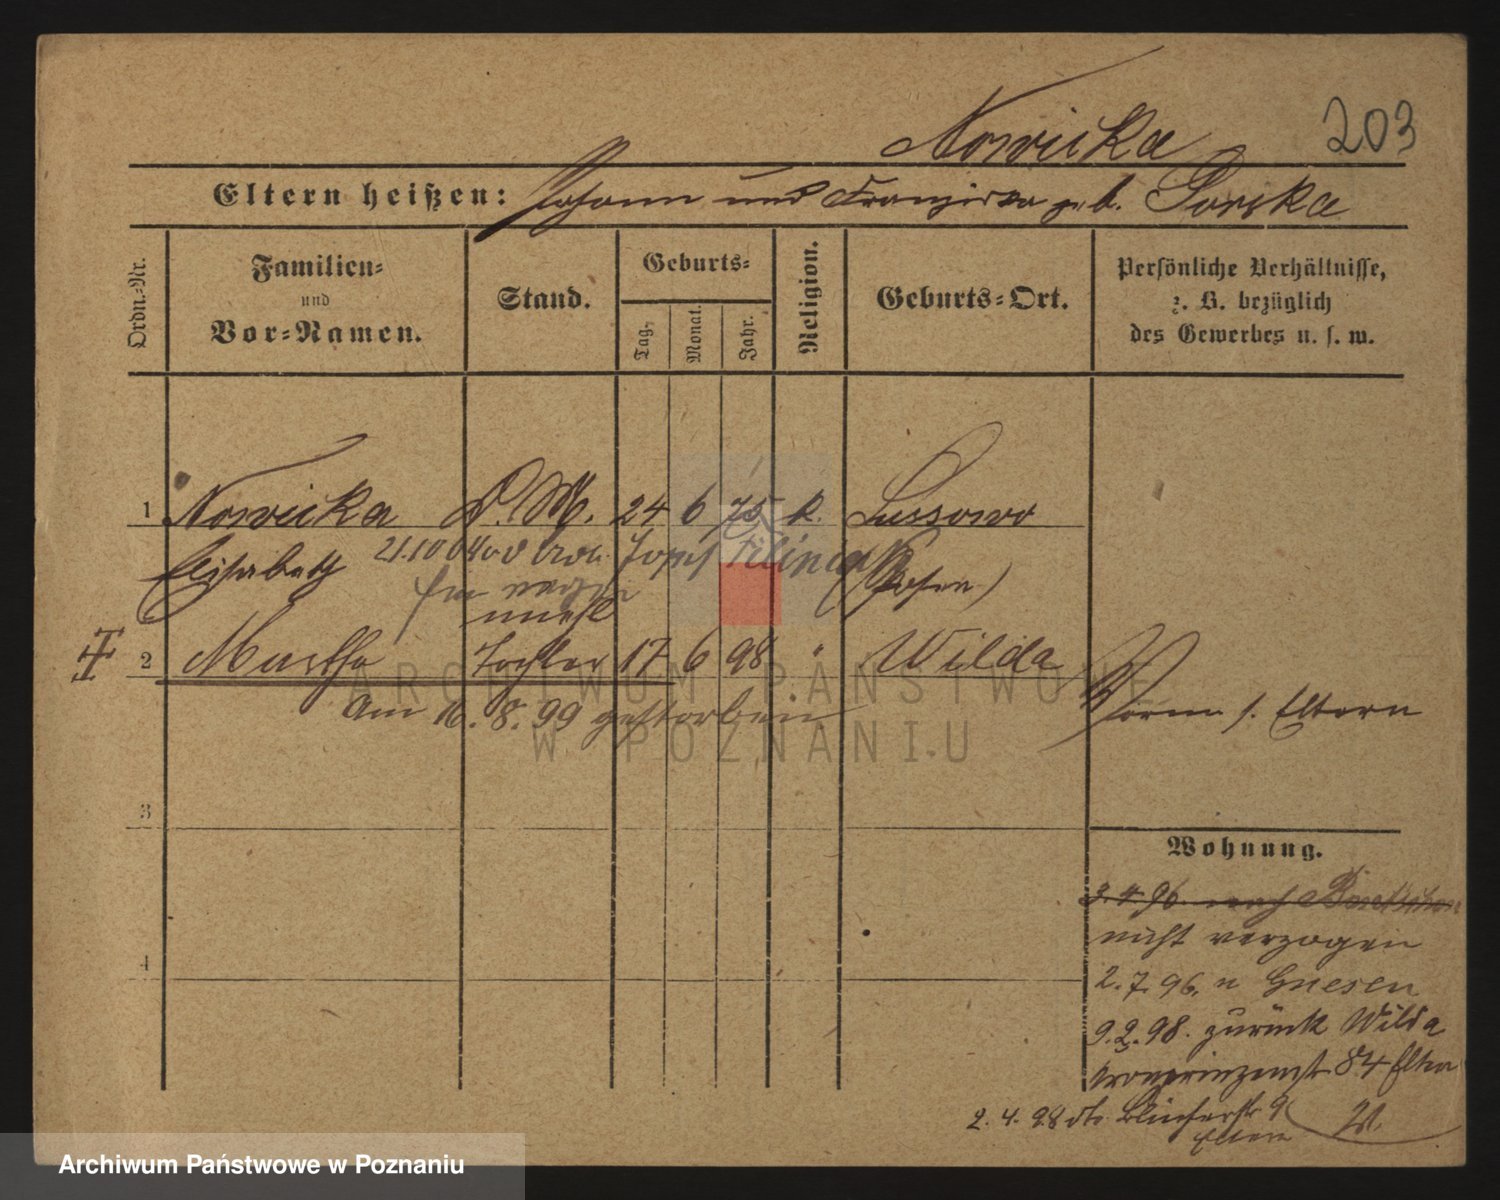 Nowicka
203
Eltern heißen: Johann und Franziska geb. Gorska
Ordn.-Nr.
Familien-
und
Vor-Namen.
Stand.
Geburts-
Tag.
Monat.
Jahr.
Religion.
Geburts-Ort.
Persönliche Verhältnisse,
z. B. bezüglich
des Gewerbes u. s. w.
1 Nowicka D. M. 24 6 75 k. Lussowo
21.10 04 Josef Filinca
Elisabeth (Posen)
unehl
2 Martha Tochter 17 6 98 " Wilda
Am 16. 8. 99 gestorben
Vorm. s. Eltern
3
4
Wohnung.
3.4.96. nach
nicht verzogen
2.7.96. n Gnesen
9.2.98. zurück Wilda
Kronprinzenst 84 Eltern
2.4.98 dto. Blücherstr 9
Eltern
ARCHIWUM PAŃSTWOWE
W POZNANIU
Archiwum Państwowe w Poznaniu